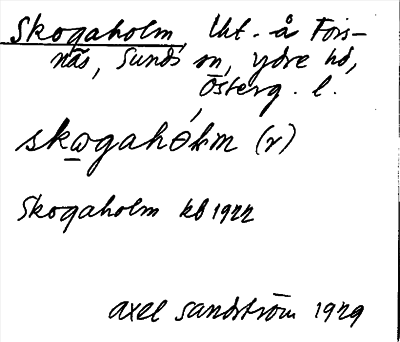 Skogaholm, lht. å Fors-
näs, Sunds sn, Ydre hd,
Österg. l.
skωgahólm (r)
Skogaholm kb 1922
Axel Sandström 1929